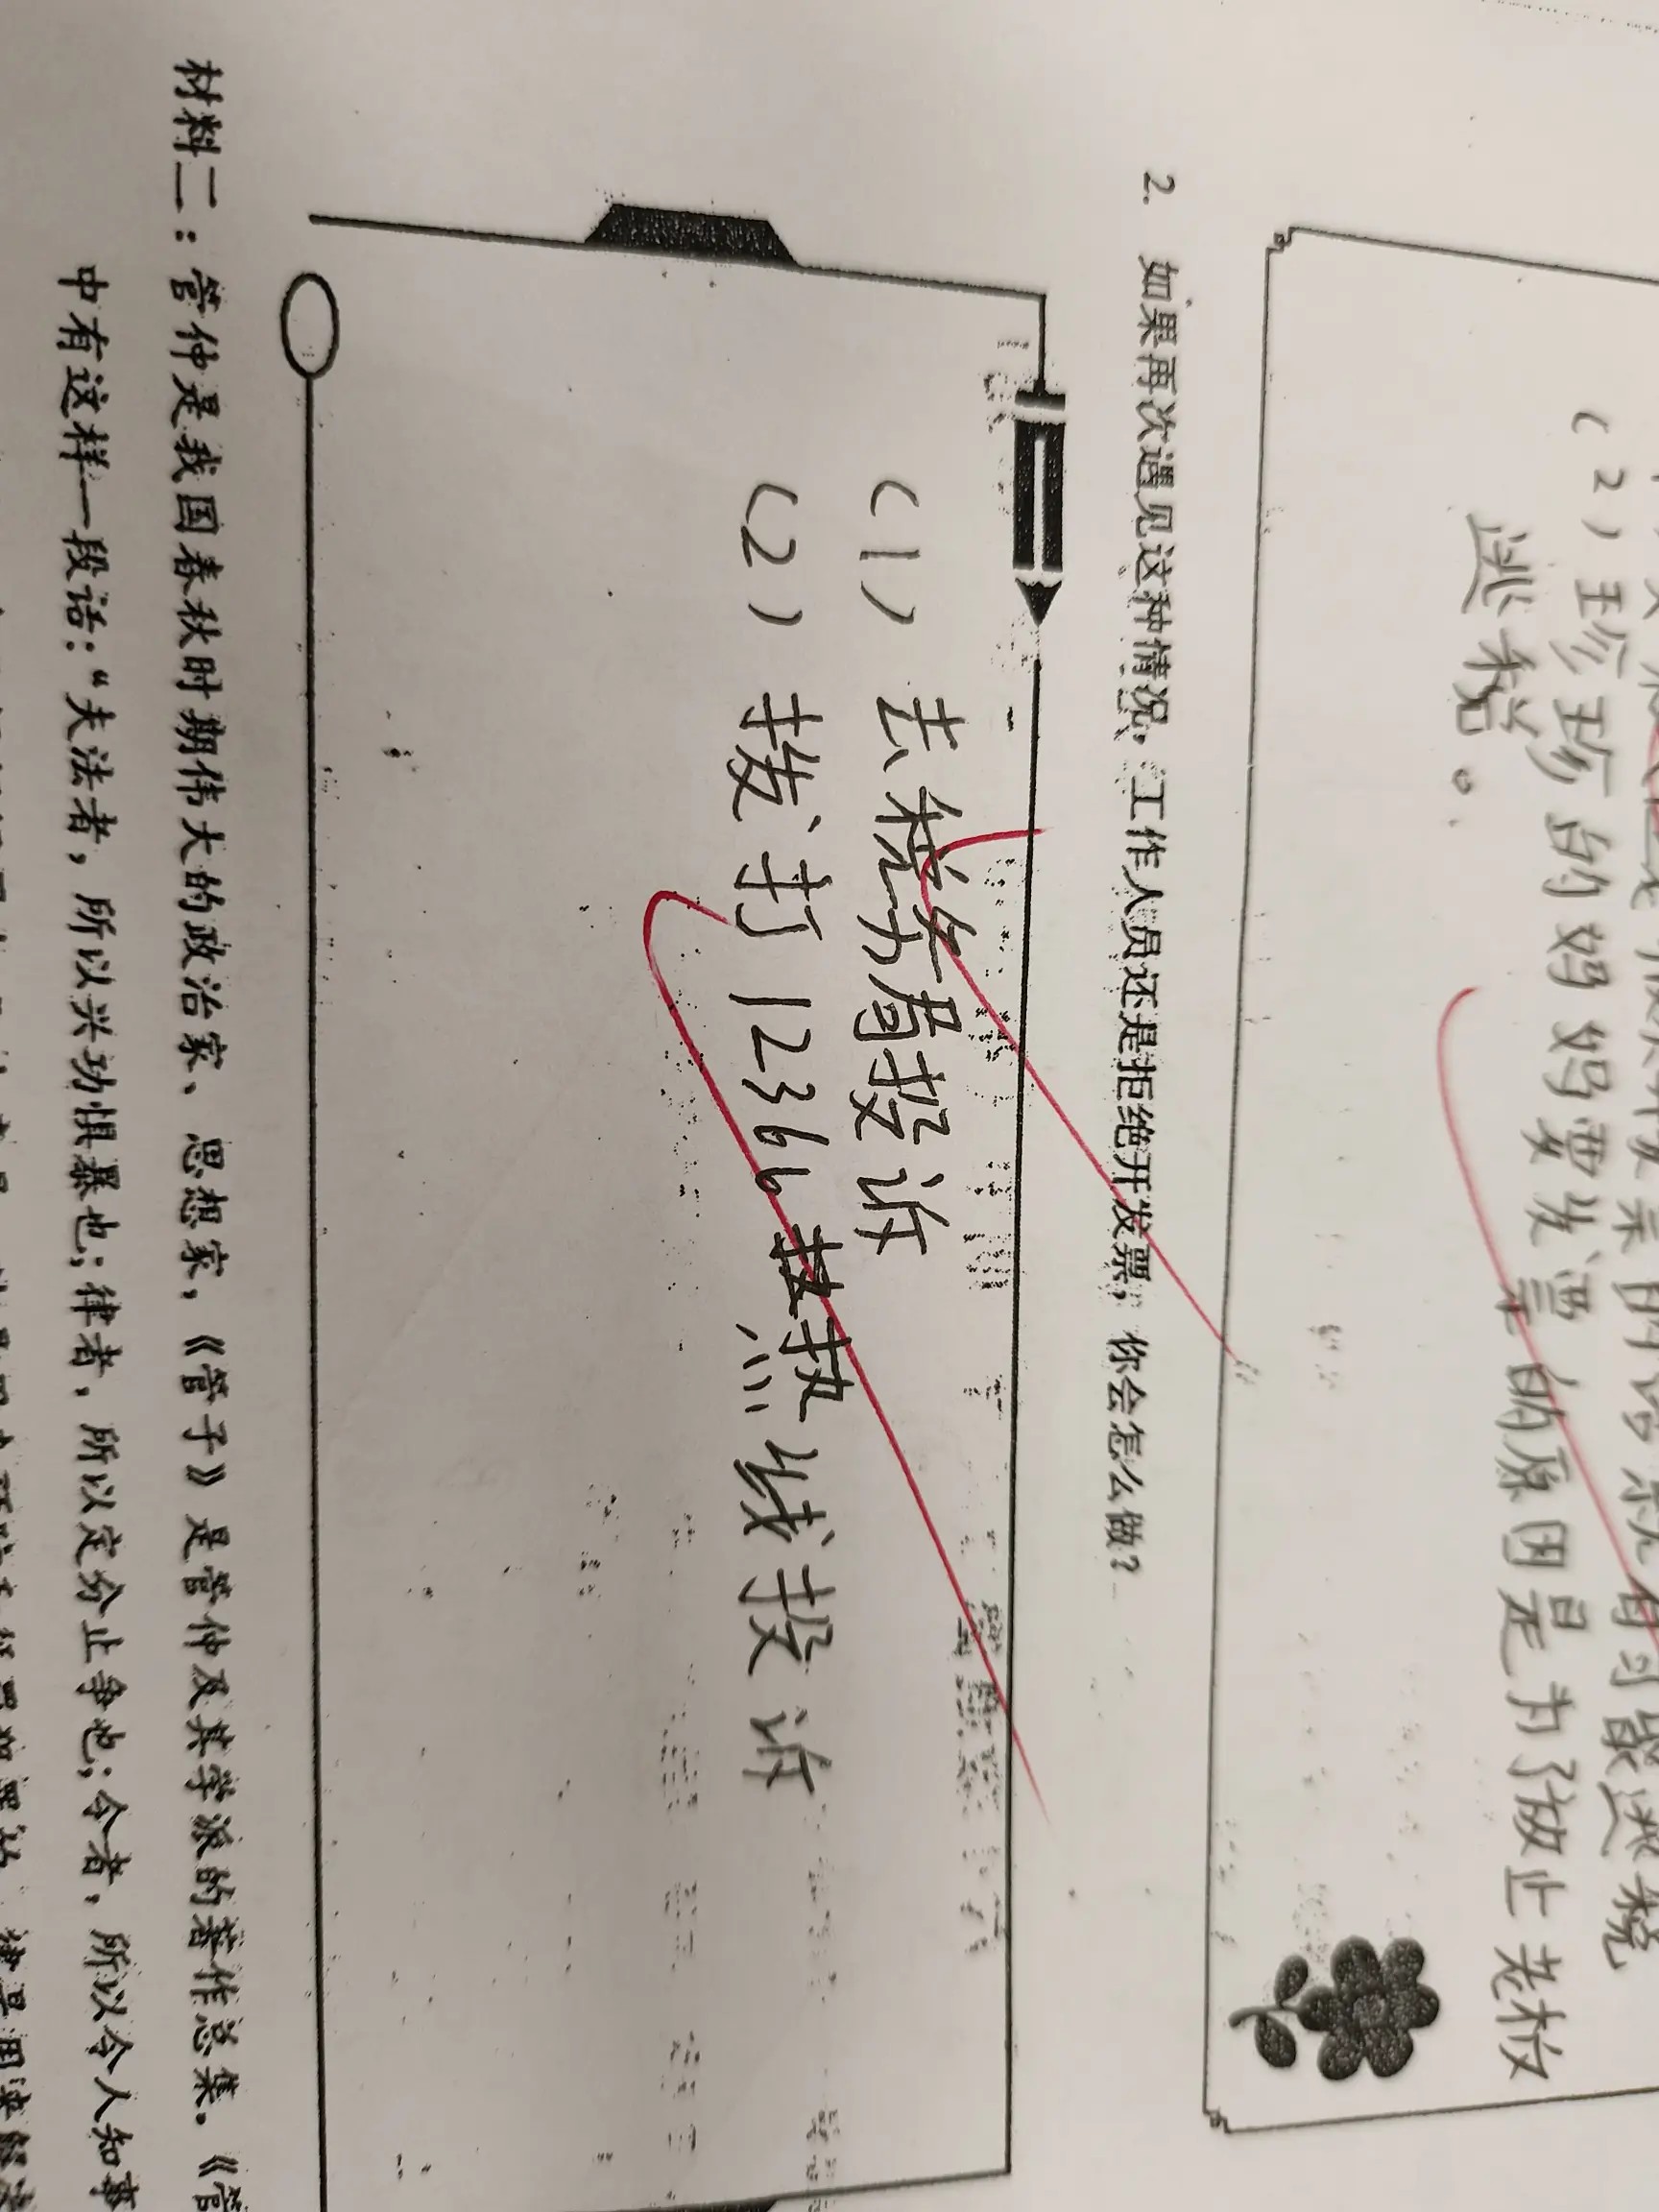 (2)珍珍的妈妈要发票的原因是为了放止老板
逃税。
2. 如果再次遇见这种情况,工作人员还是拒绝开发票,你会怎么做?
(1) 去税务局投诉
(2) 拨打 12366 热线投诉
材料二:管仲是我国春秋时期伟大的政治家、思想家,《管子》是管仲及其学派的著作总集。《管
中有这样一段话:“夫法者,所以兴功惧暴也;律者,所以定分止争也;令者,所以令人知事